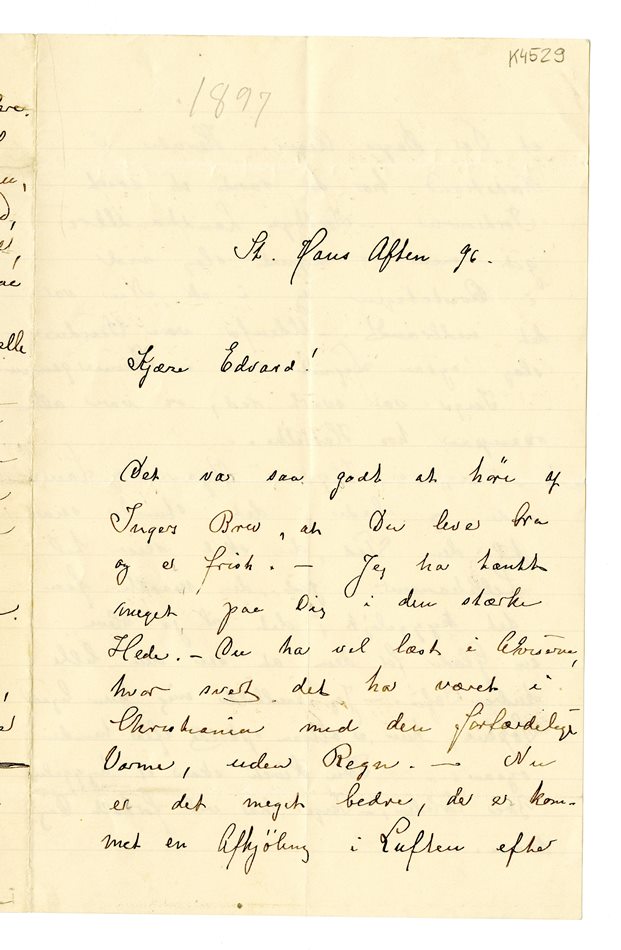 K4529
1897
St. Hans Aften 96.
Kjære Edvard!
Det var saa godt at höre af
Ingers Brev, at Du lever bra
og er frisk. – Jeg har tænkt
meget paa Dig i den stærke
Hede. – Du har vel læst i Aviserne,
hvor svert det har været i
Christiania med den forfærdelige
Varme, uden Regn. – Nu
er det meget bedre, der er kom-
met en Afkjøling i Luften efter